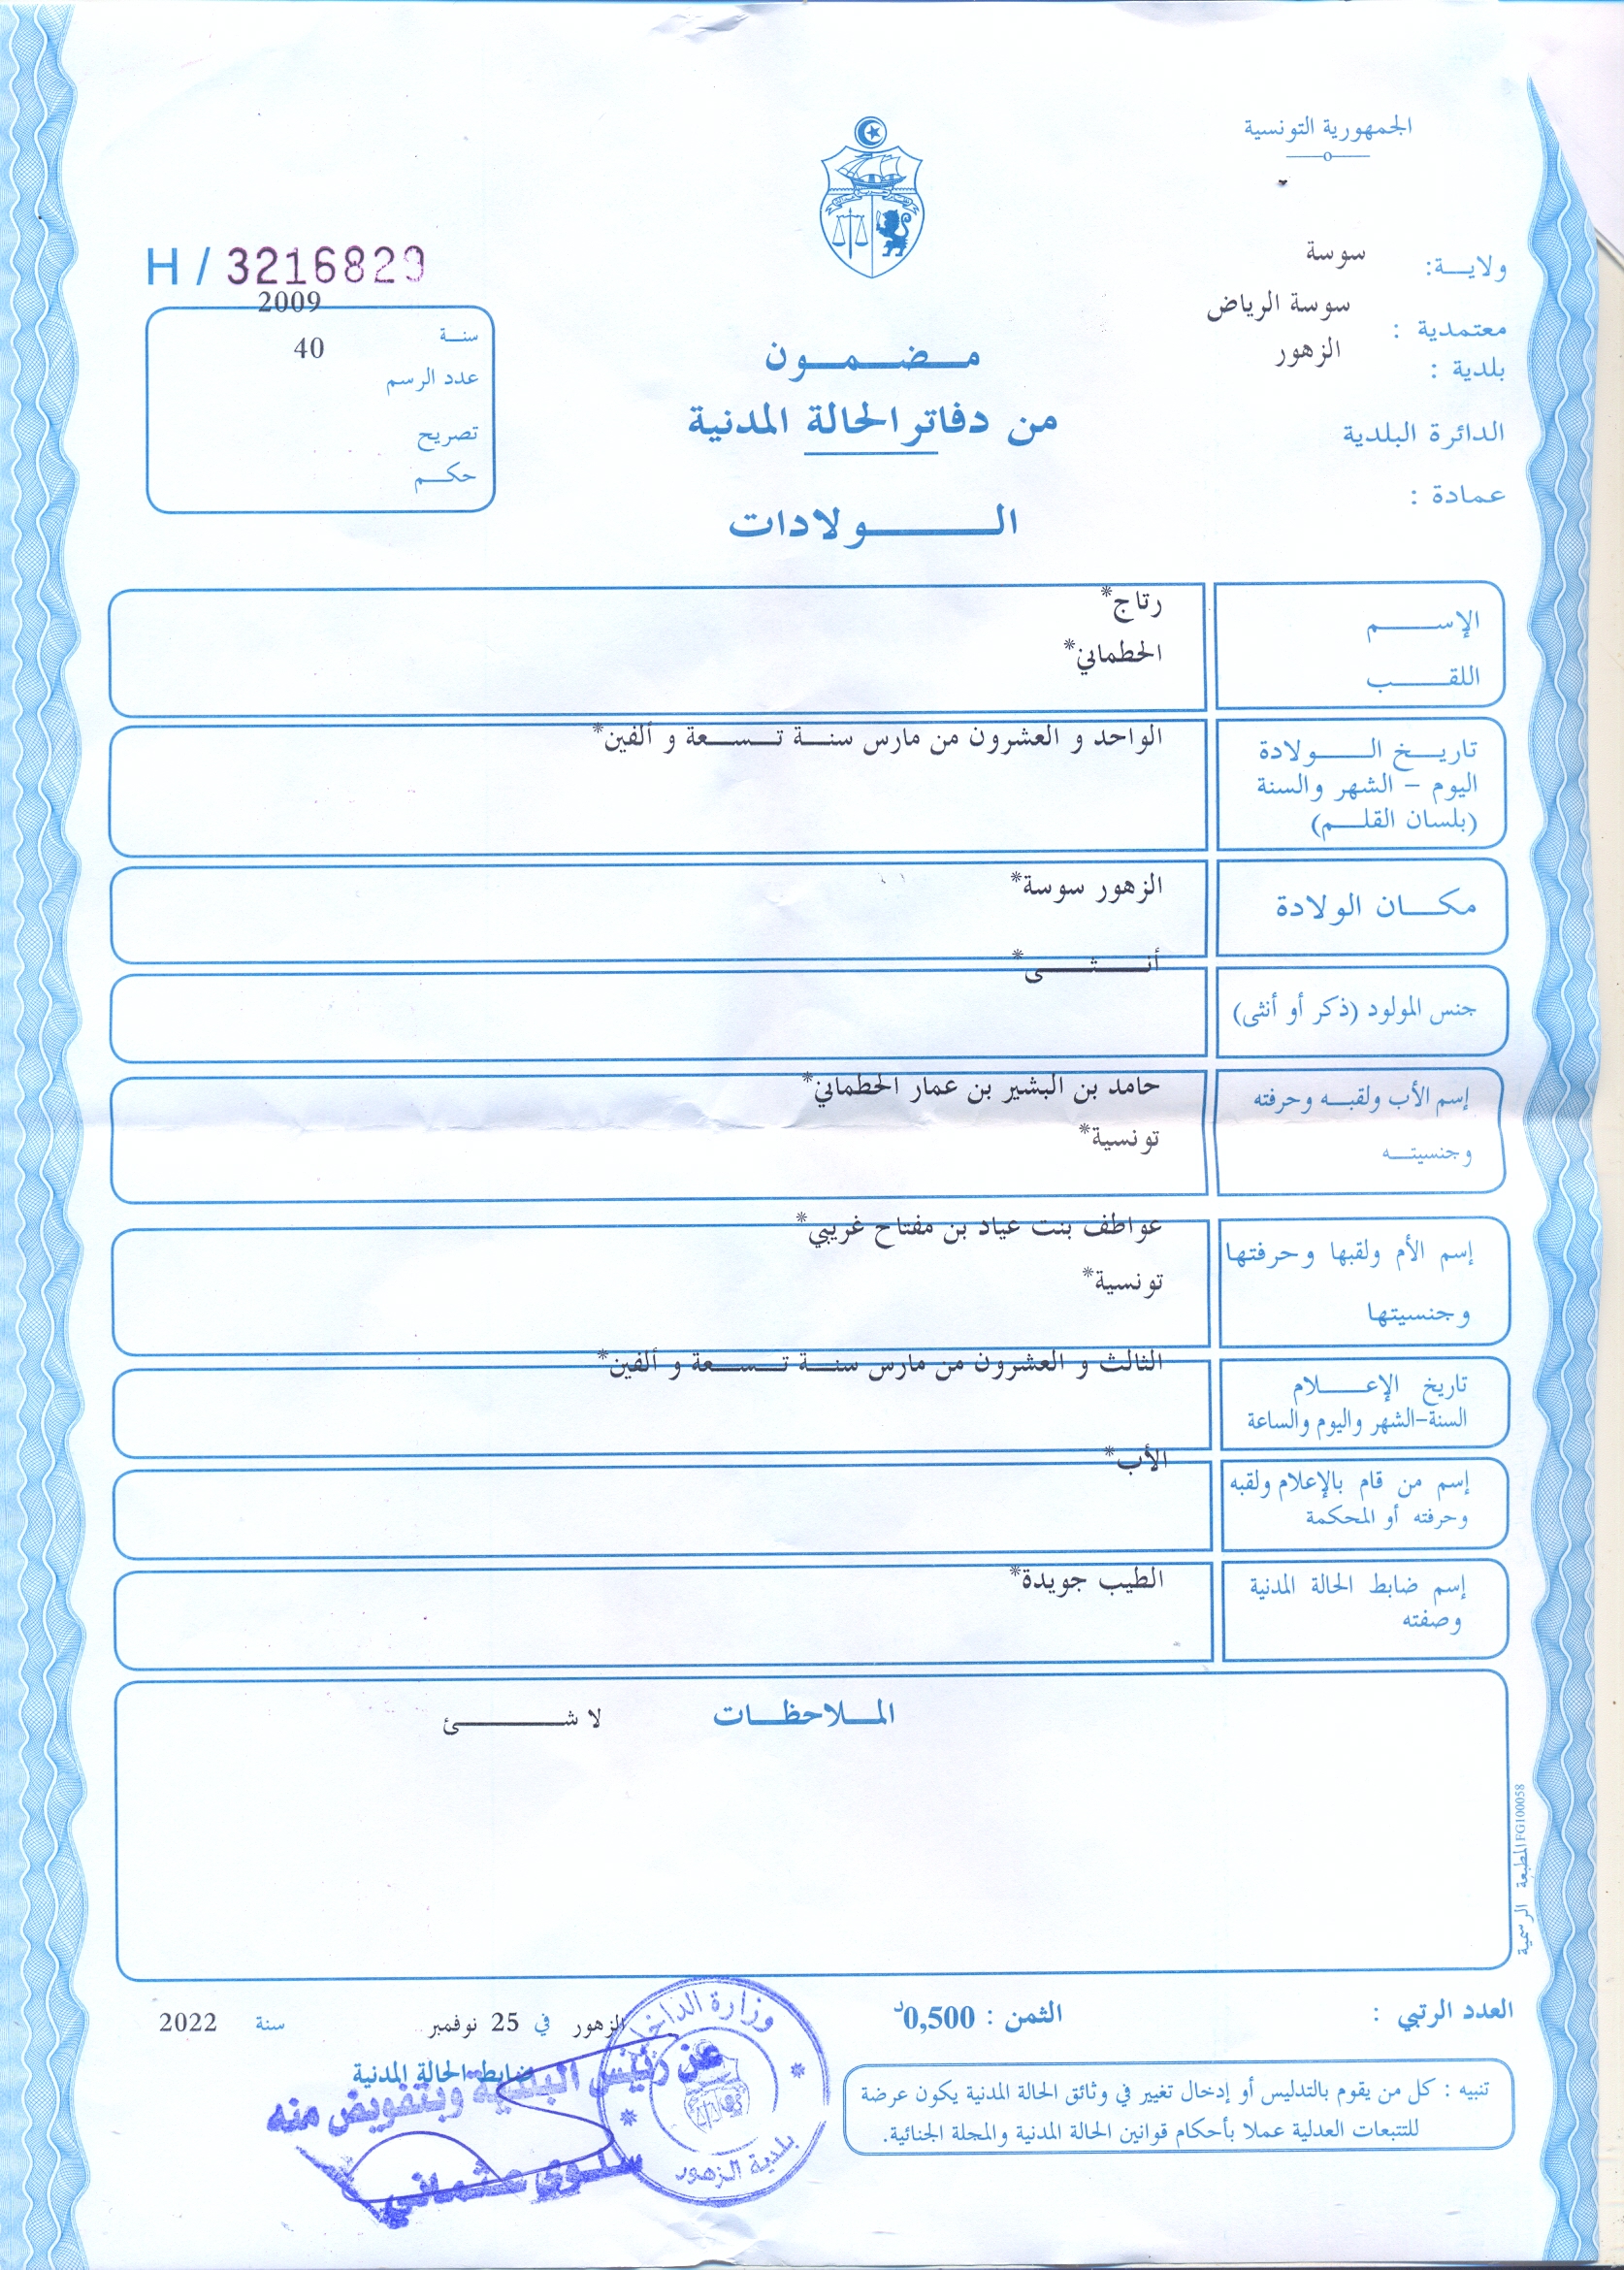 الجمهورية التونسية
ولايـــة: سوسة
معتمدية : سوسة الرياض
بلدية : الزهور
الدائرة البلدية
عمادة :
H / 3216829
سنـة 2009
عدد الرسم 40
تصريح
حكــم
مـضـمـون
من دفاتر الحالة المدنية
الـولادات
الإســـم رتاج*
اللقـــب الحطماني*
تاريـخ الـــولادة
اليوم - الشهر والسنة
(بلسان القلـم)
الواحد و العشرون من مارس سنـة تـسـعة و ألفين*
مكــان الولادة الزهور سوسة*
جنس المولود (ذكر أو أنثى) أنــثــى*
إسم الأب ولقبـه وحرفته حامد بن البشير بن عمار الحطماني*
وجنسيتـه تونسية*
إسم الأم ولقبها وحرفتها عواطف بنت عياد بن مفتاح غريبي*
وجنسيتها تونسية*
تاريخ الإعــلام
السنة-الشهر واليوم والساعة
الثالث و العشرون من مارس سنـة تـسـعة و ألفين*
إسم من قام بالإعلام ولقبه
وحرفته أو المحكمة
الأب*
إسم ضابط الحالة المدنية
وصفته
الطيب جويدة*
المـلاحظـات
لا شــــئ
المطبعة الرسمية FG100058
العدد الرتبي :
الثمن : 0,500د
الزهور في 25 نوفمبر سنة 2022
ضابط الحالة المدنية
عن رئيس البلدية وبتفويض منه
سلوى عثماني
وزارة الداخلية
بلدية الزهور
تنبيه : كل من يقوم بالتدليس أو إدخال تغيير في وثائق الحالة المدنية يكون عرضة
للتتبعات العدلية عملا بأحكام قوانين الحالة المدنية والمجلة الجنائية.